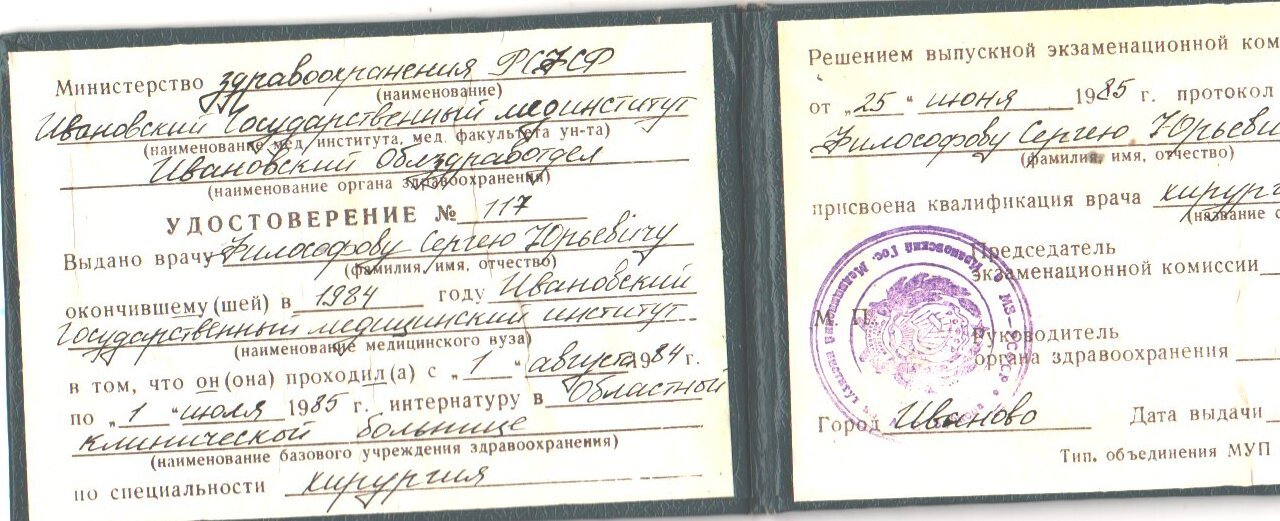 Министерство здравоохранения РСФСР
(наименование)
Ивановский Государственный мединститут
(наименование мед. института, мед. факультета ун-та)
Ивановский Облздравотдел
(наименование органа здравоохранения)
УДОСТОВЕРЕНИЕ № 117
Выдано врачу Философову Сергею Юрьевичу
(фамилия, имя, отчество)
окончившему (шей) в 1984 году Ивановский
Государственный медицинский институт
(наименование медицинского вуза)
в том, что он (она) проходил (а) с „1“ августа 1984 г.
по „1“ июля 1985 г. интернатуру в Областной
клинической больнице
(наименование базового учреждения здравоохранения)
по специальности хирургия
Решением выпускной экзаменационной ком
от „25“ июня 1985 г. протокол
Философову Сергею Юрьеви
(фамилия, имя, отчество)
присвоена квалификация врача хирург
(название с
Председатель
экзаменационной комиссии
М. П.
Руководитель
органа здравоохранения
Город Иваново Дата выдачи
Тип. объединения МУП